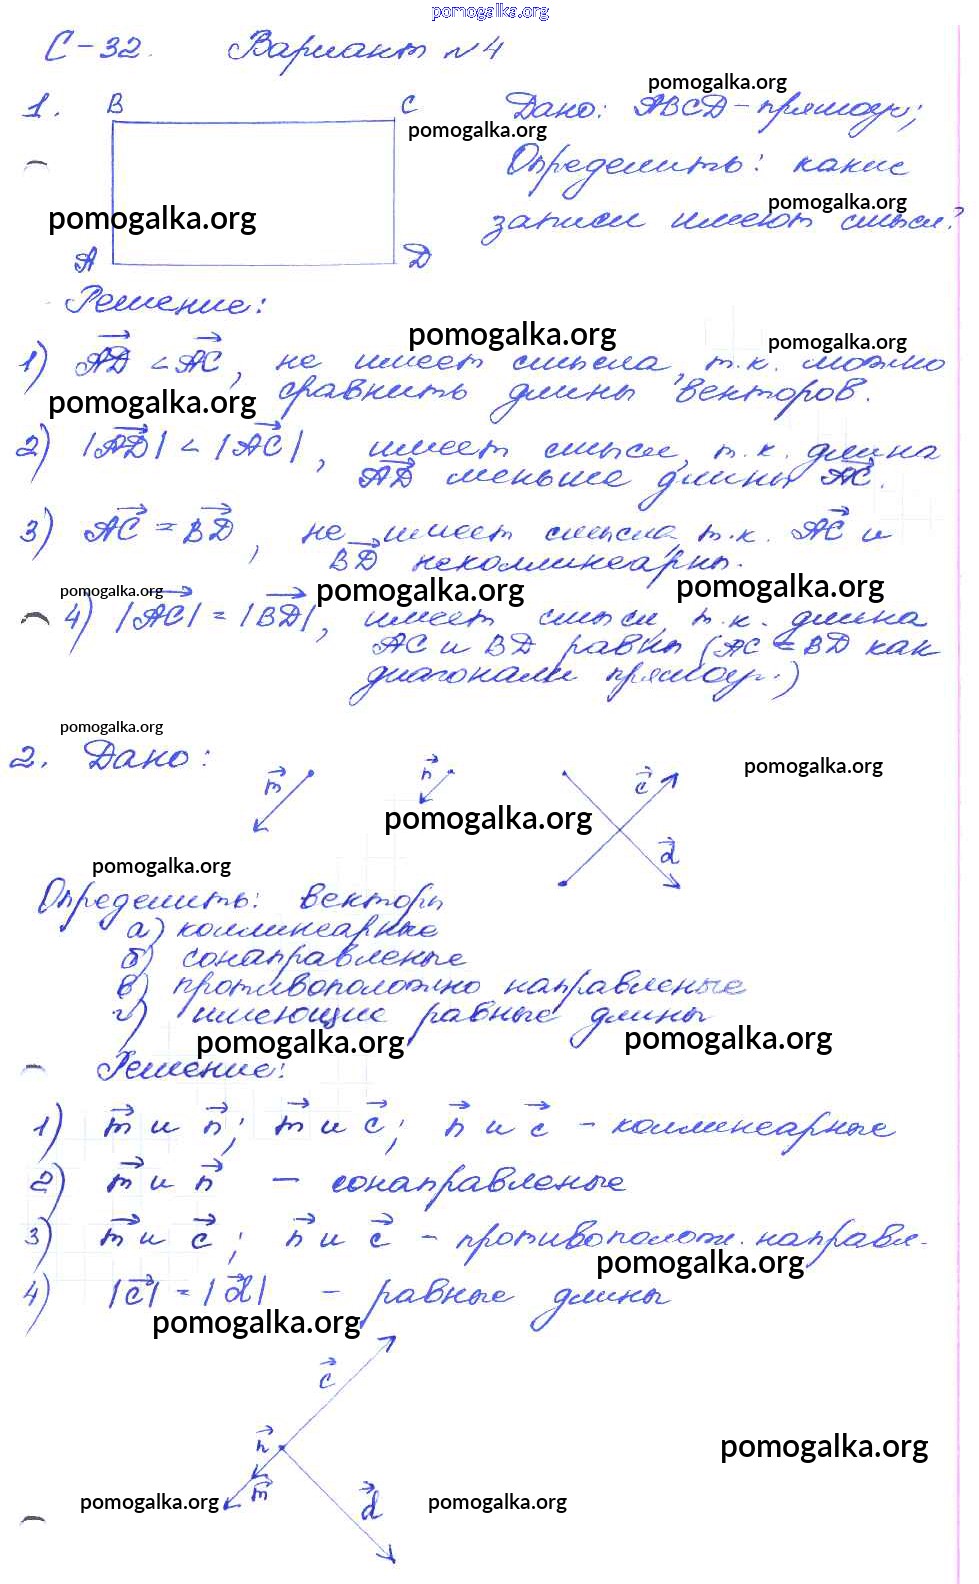 pomogalka.org
С-32. Вариант №4
pomogalka.org
1. B C Дано: ABCD - прямоуг;
pomogalka.org
Определить: какие
pomogalka.org
записи имеют смысл?
pomogalka.org
A D
Решение:
pomogalka.org
pomogalka.org
1) AD < AC, не имеет смысла, т.к. можно
сравнить длины векторов.
pomogalka.org
2) |AD| < |AC|, имеет смысл, т.к. длина
AD меньше длины AC.
3) AC = BD, не имеет смысла, т.к. AC и
BD неколлинеарны.
pomogalka.org pomogalka.org pomogalka.org
4) |AC| = |BD|, имеет смысл, т.к. длина
AC и BD равны (AC = BD как
диагонали прямоуг.)
pomogalka.org
2. Дано:
pomogalka.org
m n c
pomogalka.org
d
pomogalka.org
Определить: векторы
а) коллинеарные
б) сонаправленые
в) противоположно направленые
г) имеющие равные длины
pomogalka.org pomogalka.org
Решение:
1) m и n; m и c; n и c - коллинеарные
2) m и n - сонаправленые
3) m и c; n и c - противополож. направл.
pomogalka.org
4) |c| = |d| - равные длины
pomogalka.org
c
n
pomogalka.org
m
d
pomogalka.org pomogalka.org